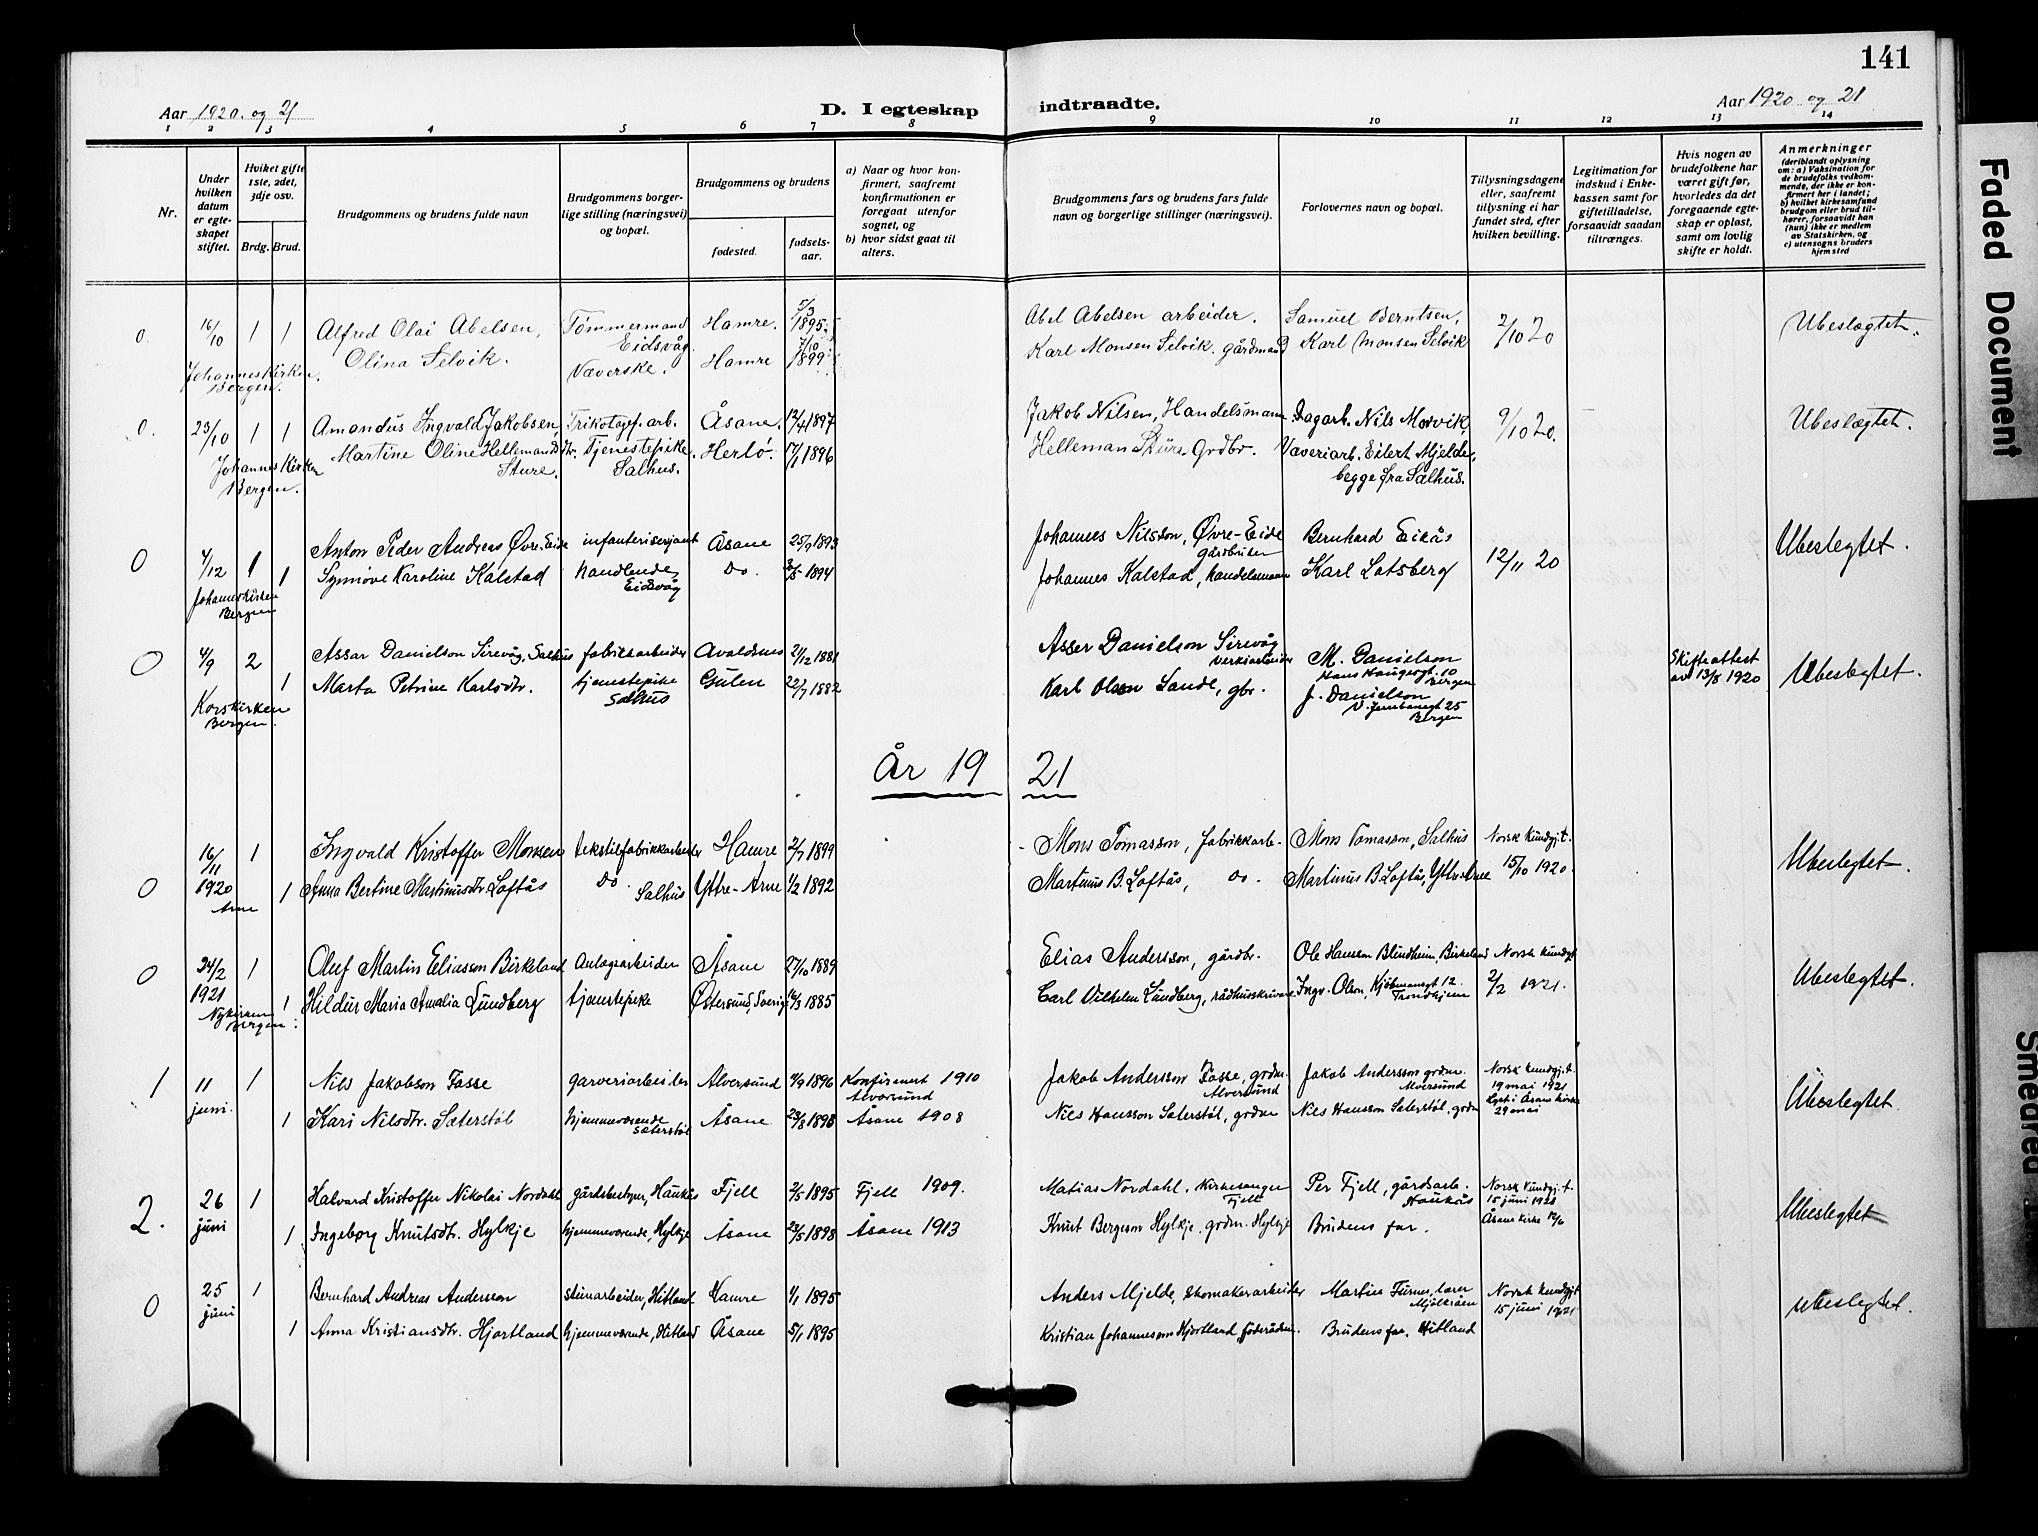 141
Aar 1920. og 21
D. I egteskap
indtraadte.
Aar 1920 og 21
1 2 3 4 5 6 7 8 9 10 11 12 13 14
Nr.
Under hvilken datum er egteskapet stiftet.
Hviket gifte 1ste, 2det, 3dje osv.
Brdg. Brud.
Brudgommens og brudens fulde navn
Brudgommens borgerlige stilling (næringsvei) og bopæl.
Brudgommens og brudens
fødested.
fødselsaar.
a) Naar og hvor konfirmert, saafremt konfirmationen er foregaat utenfor sognet, og
b) hvor sidst gaat til alters.
Brudgommens fars og brudens fars fulde navn og borgerlige stillinger (næringsvei).
Forlovernes navn og bopæl.
Tillysningsdagene eller, saafremt tillysning ei har fundet sted, efter hvilken bevilling.
Legitimation for indskud i Enkekassen samt for giftetilladelse, forsaavidt saadan tiltrænges.
Hvis nogen av brudefolkene har været gift før, hvorledes da det foregaaende egteskap er opløst, samt om lovlig skifte er holdt.
Anmerkninger
(deriblandt oplysning om: a) Vaksination for de brudefolks vedkommende, der ikke er konfirmert her i landet; b) hvilket kirkesamfund brudgom eller brud tilhører, forsaavidt han (hun) ikke er medlem av Statskirken, og c) utensogns bruders hjemsted
0. 16/10 1 1 Alfred Olai Abelsen, Tømmermand Eidsvåg. Hamre. 5/3 1895. Abel Abelsen arbeider. Samuel Berntsen, 2/10 20 Ubeslægtet.
Olina Selvik. Væverske. Hamre 7/10 1899 Karl Monsen Selvik. gårdmand Karl Monsen Selvik
Johanneskirken. Bergen.
0. 23/10 1 1 Amandus Ingvald Jakobsen, Trikotagef. arb. Åsane. 12/4 1897 Jakob Nilsen, Handelsmann Dagarb. Nils Morvik, 9/10 20. Ubeslægtet.
Martine Oline Hellemandsdtr. Sture. Tjenestepike. Salhus. Herlø. 17/1 1896 Helleman Sture. Grdbr. Væveriarb. Eilert Mjelde, begge fra Salhus.
Johannes Kirken Bergen.
0 4/12 1 Anton Peder Andreas Øvre-Eide infanterisersjant Åsane 25/9 1893 Johannes Nilsson, Øvre-Eide gårdbruker Bernhard Eikås 12/11 20 Ubeslegtet.
1 Synnøve Karoline Kalstad handlende, Eidsvåg Do. 1894 Johannes Kalstad, handelsmann Karl Lotsberg
Johanneskirken Bergen
0 4/9 2 Assar Danielson Sirevåg, Salhus fabrikkarbeider Avaldsnes 21/12 1881 Asser Danielson Sirevåg verkiarbeider M. Danielson Hans Haugesgt. 10 Bergen Skifteattest av 13/8 1920 Ubeslegtet.
1 Marta Petrine Karlsdtr. tjenestepike Salhus Gulen 22/7 1882 Karl Olson Sande, gbr. J. Danielson V. Jernbanegt 25 Bergen
Korskirken Bergen.
År 19 21
0 16/11 1920 Arne 1 Ingvald Kristoffer Monsen tekstilfabrikkarbeider Hamre 2/7 1899 Mons Tomasson, fabrikkarb. Mons Tomasson, Salhus Norsk kundgj.t. 15/10 1920. Ubeslegtet.
1 Anna Bertine Martinusdtr. Loftås Do. Salhus Ytre-Arne 1/2 1892 Martinus B. Loftås, Do. Martinus B. Loftås, Ytre Arne
0 24/2 1921 1 Oluf Martin Eliasson Birkeland Anlegsarbeider Åsane 27/10 1889 Elias Andersson, gårdbr. Ole Hansson Blindheim, Birkeland Norsk kundgj.t. 2/2 1921. Ubeslegtet.
1 Hildur Maria Amalia Lundberg tjenestepike Østersund, Sverige 1885 Carl Vilhelm Lundberg, rådhusskriver Ingv. Olson, Kjøbmannsgt 12. Trondhjem
Nykirken Bergen.
1 11 juni. 1 Nils Jakobson Fosse garveriarbeider Alversund 4/9 1896 Konfirmert 1910 Alversund Jakob Andersson Fosse, grdm. Alversund Jakob Andersson grdm. Alversund Norsk kundgj.t. 19 mai 1921 Lyst i Åsane kirke 29 mai Ubeslegtet.
1 Kari Nilsdtr. Sæterstøl hjemmeværende Sæterstøl Åsane 23/8 1893 Åsane 1908 Nils Hansson Sæterstøl, grdm Nils Hansson Sæterstøl, grdm
2. 26 juni 1 Halvard Kristoffer Nikolai Nordahl gårdsbestyrer, Haukås Fjell 2/5 1895 Fjell 1909. Matias Nordahl, Kirkesanger Fjell Per Fjell, gårdsarb. Haukås Norsk kundgj.t. 15 juni 1921 Åsane kirke 12/6 Ubeslegtet
1 Ingeborg Knutsdtr. Hylkje hjemmeværende, Hylkje Åsane 23/5 1898 Åsane 1913 Knut Bergeson Hylkje, grdm. Hylkje Brudens far.
0 25 juni 1 Bernhard Andreas Anderson stenarbeider, Hitland Hamre 4/1 1895 Anders Mjelde, skomakerarbeider Martin Furnes, lærer Mjølkråen Norsk kundgj.t 15 juni 1921 Ubeslegtet.
1 Anna Kristiansdtr. Hjortland hjemmeværende, Hitland Åsane 5/1 1895 Kristian Johannesson Hjortland, føderådm. Brudens far, Hitland
Faded Document
Smeared